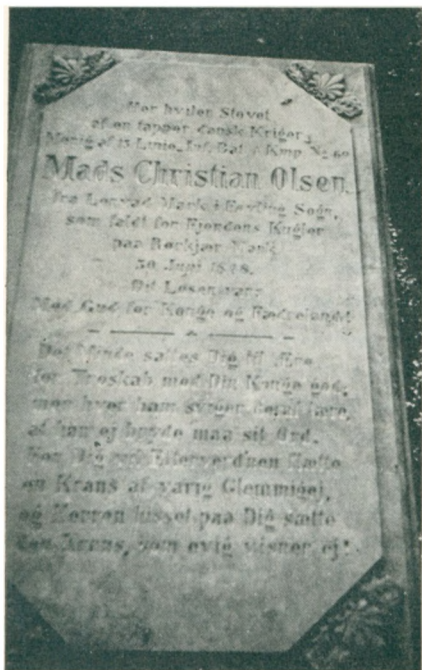 Her hviler Støvet
af en tapper dansk Kriger,
Menig af 13 Linie. Inf. Bat. Kmp. No 60
Mads Christian Olsen
fra Mark i Sogn,
som faldt for Fjendens Kugler
paa Mark
30 Juni 1848.
Dit Løsen var:
Med Gud for Konge og Fædreland!
Det Minde sattes Dig til Ære
for Troskab mod Din Konge god,
hver ham sviger lære,
at han ej
Dig Efterverd'nen flætte
en Krans af varig Glemmigej,
og Herren hisset paa Dig sætte
den Krans, som evig visner ej!